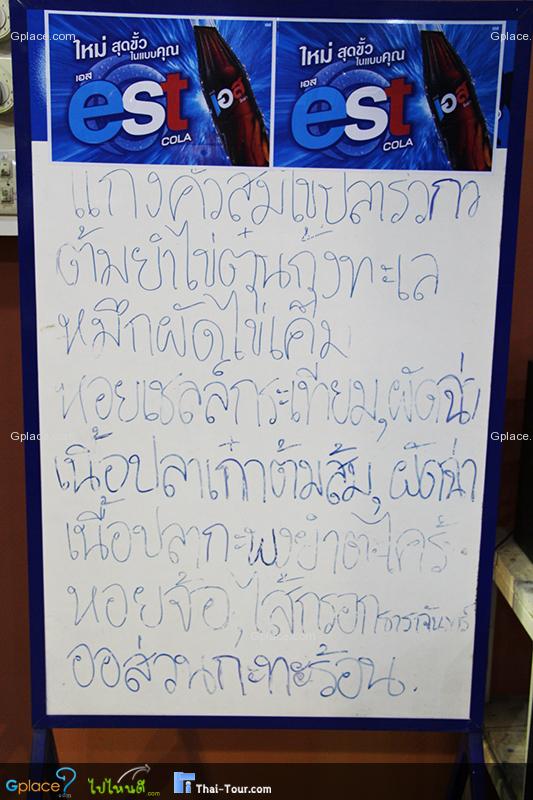 ใหม่ สุดขั้ว ในแบบคุณ
เอส
est
COLA
เอส
ใหม่ สุดขั้ว ในแบบคุณ
เอส
est
COLA
เอส
แกงคั่วส้มไข่ปลาริวกิว
ต้มยำไข่ตุ๋นกุ้งทะเล
หมึกผัดไข่เค็ม
หอยเชลล์กระเทียม, ผัดฉ่า
เนื้อปลาเก๋าต้มส้ม, ผัดฉ่า
เนื้อปลากะพงยำตะไคร้.
หอยจ้อ, ไส้กรอก
ออส่วนกะทะร้อน.
Gplace.com
ไปไหนดี.com
Thai-Tour.com